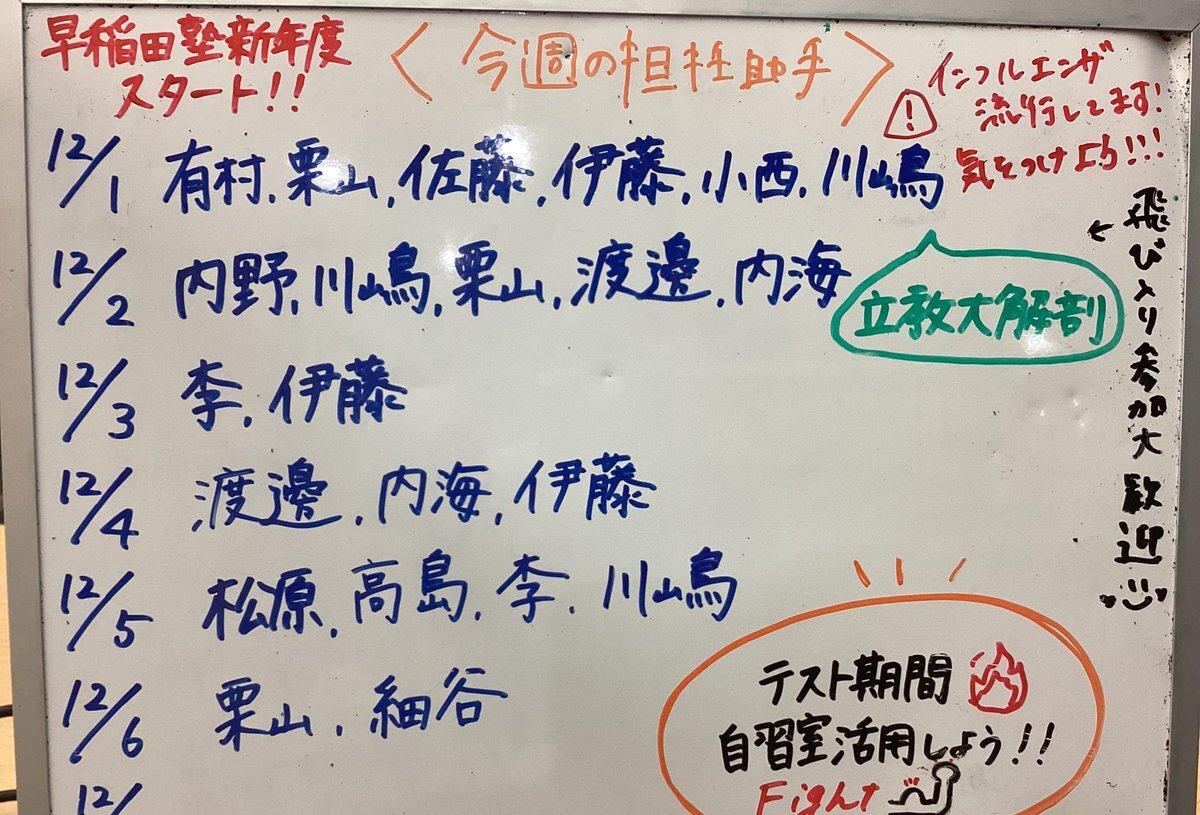 早稲田塾新年度
スタート!!
〈今週の担任助手〉
⚠ インフルエンザ
流行してます!
気をつけよう!!!
12/1 有村, 栗山, 佐藤, 伊藤, 小西, 川嶋
12/2 内野, 川嶋, 栗山, 渡邊, 内海
立教大解剖
飛び入り参加大歓迎
12/3 李, 伊藤
12/4 渡邊, 内海, 伊藤
12/5 松原, 高島, 李, 川嶋
12/6 栗山, 細谷
12/
テスト期間
自習室活用しよう!!
Fight